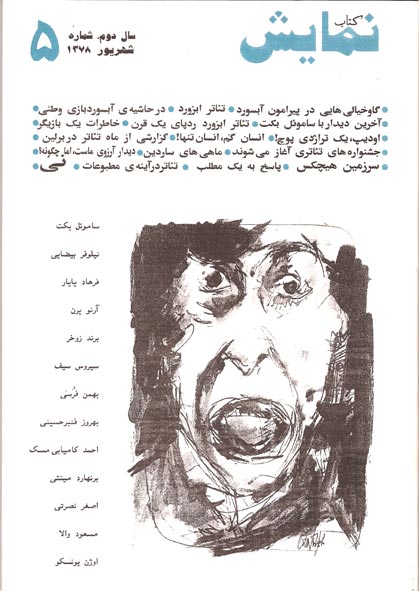 کتاب
نمایش
سال دوم. شماره
شهریور ۱۳۷۸
۵
گاوخیالی‌هایی در پیرامون آبسورد • تئاتر ابزورد • در حاشیه‌ی آبسوردبازی وطنی •
آخرین دیدار با ساموئل بکت • تئاتر ابزورد ردپای یک قرن • خاطرات یک بازیگر •
اودیپ، یک تراژدی پوچ! • انسان گم، انسان تنها! • گزارشی از ماه تئاتر در برلین •
جشنواره های تئاتری آغاز می شوند • ماهی های ساردین • دیدار آرزوی ماست، اما چگونه؟ •
سرزمین هیچکس • پاسخ به یک مطلب • تئاتر در آینه‌ی مطبوعات • نی
ساموئل بکت
نیلوفر بیضایی
فرهاد پایار
آرنو پرن
برند زوخر
سیروس سیف
بهمن فرسی
بهروز قنبرحسینی
احمد کامیابی مسک
برنهارد مینتی
اصغر نصرتی
مسعود والا
اوژن یونسکو